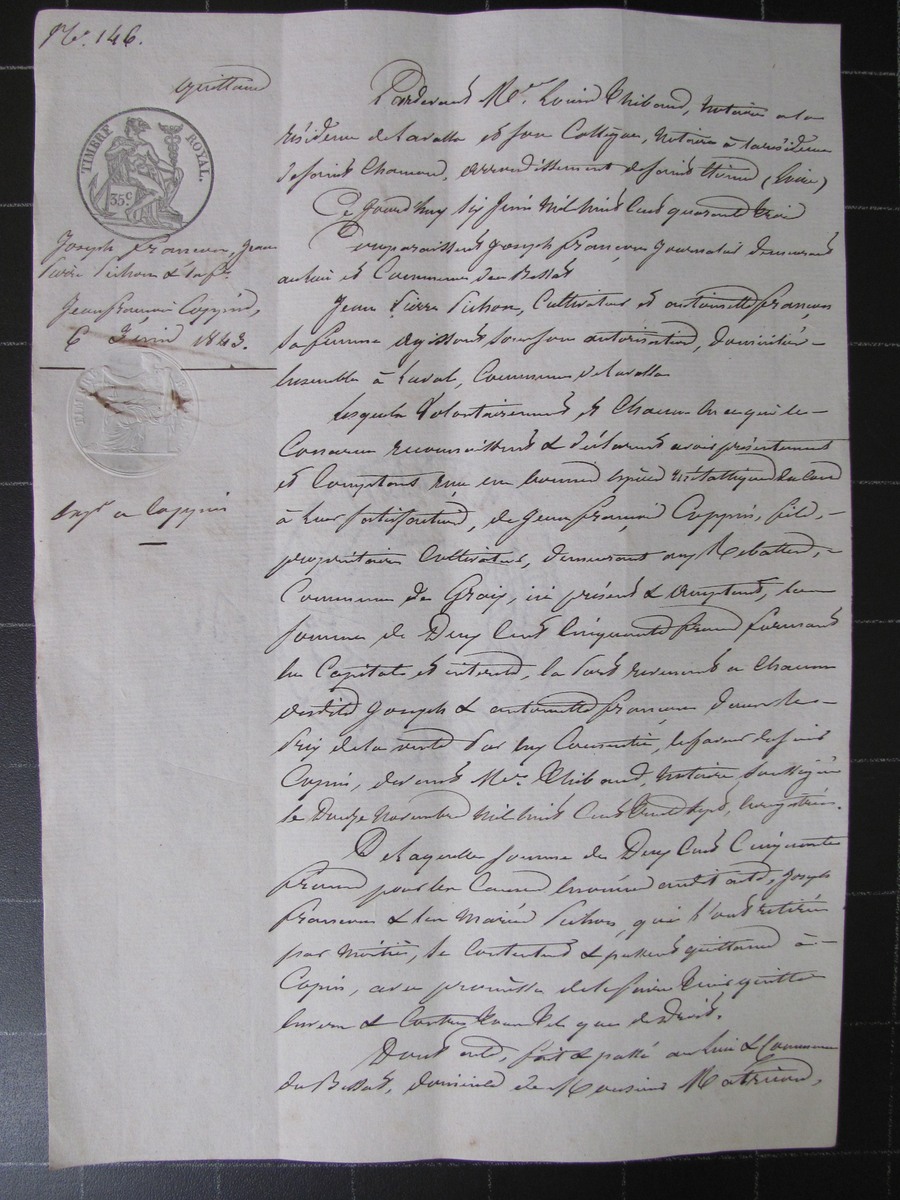 N.° 146.
quittance
TIMBRE ROYAL.
35 c
Joseph françon, Jean
Pierre Pichon & sa fe.
Jean françois Coppin,
6 Juin 1843.
Exp.on à Coppin
Pardevant Me. Louis Thibaud, notaire à la
résidence de Lavalla et son Collègue, notaire à la résidence
de saint Chamond, arrondissement de saint Etienne (Loire)
Ce Jourd'huy six Juin Mil huit Cent quarante trois
Comparaissent Joseph françon Journalier demeurant
au lieu et Commune du Bessat
Jean Pierre Pichon, Cultivateur et antoinette françon
sa femme agissant sous son autorisation, domiciliés
Ensemble à Laval, Commune de Lavalla
Lesquels Volontairement et Chacun En ce qui le
Concerne reconnaissent & déclarent avoir présentement
et Comptant reçu en bonnes espèces métalliques de cours
à leur satisfaction, de Jean françois Coppin, fils,
propriétaire Cultivateur, demeurant aux Rebattes,
Commune de Graix, ici présent & acceptant, la
somme de Deux Cent Cinquante francs formant
En Capital et intérêts, la part revenant à Chacun
desdits Joseph & antoinette françon dans le
Prix de la vente Par Eux Consentie, En faveur desdit
Copin, devant Me. Thibaud, notaire soussigné
le Douze Novembre Mil huit Cent trente sept, Enregistrée.
De laquelle somme de Deux Cent Cinquante
francs pour les Causes Enoncées audit acte, Joseph
françon & les Mariés Pichon, qui l'ont retirée
par Moitié, se Contentent & passent quittance à
Copin, avec promesse de le faire tenir quitte
Envers & Contre tous tel que de Droit.
Dont acte, fait & passé au lieu & Commune
du Bessat, domicile de Monsieur Matricon,